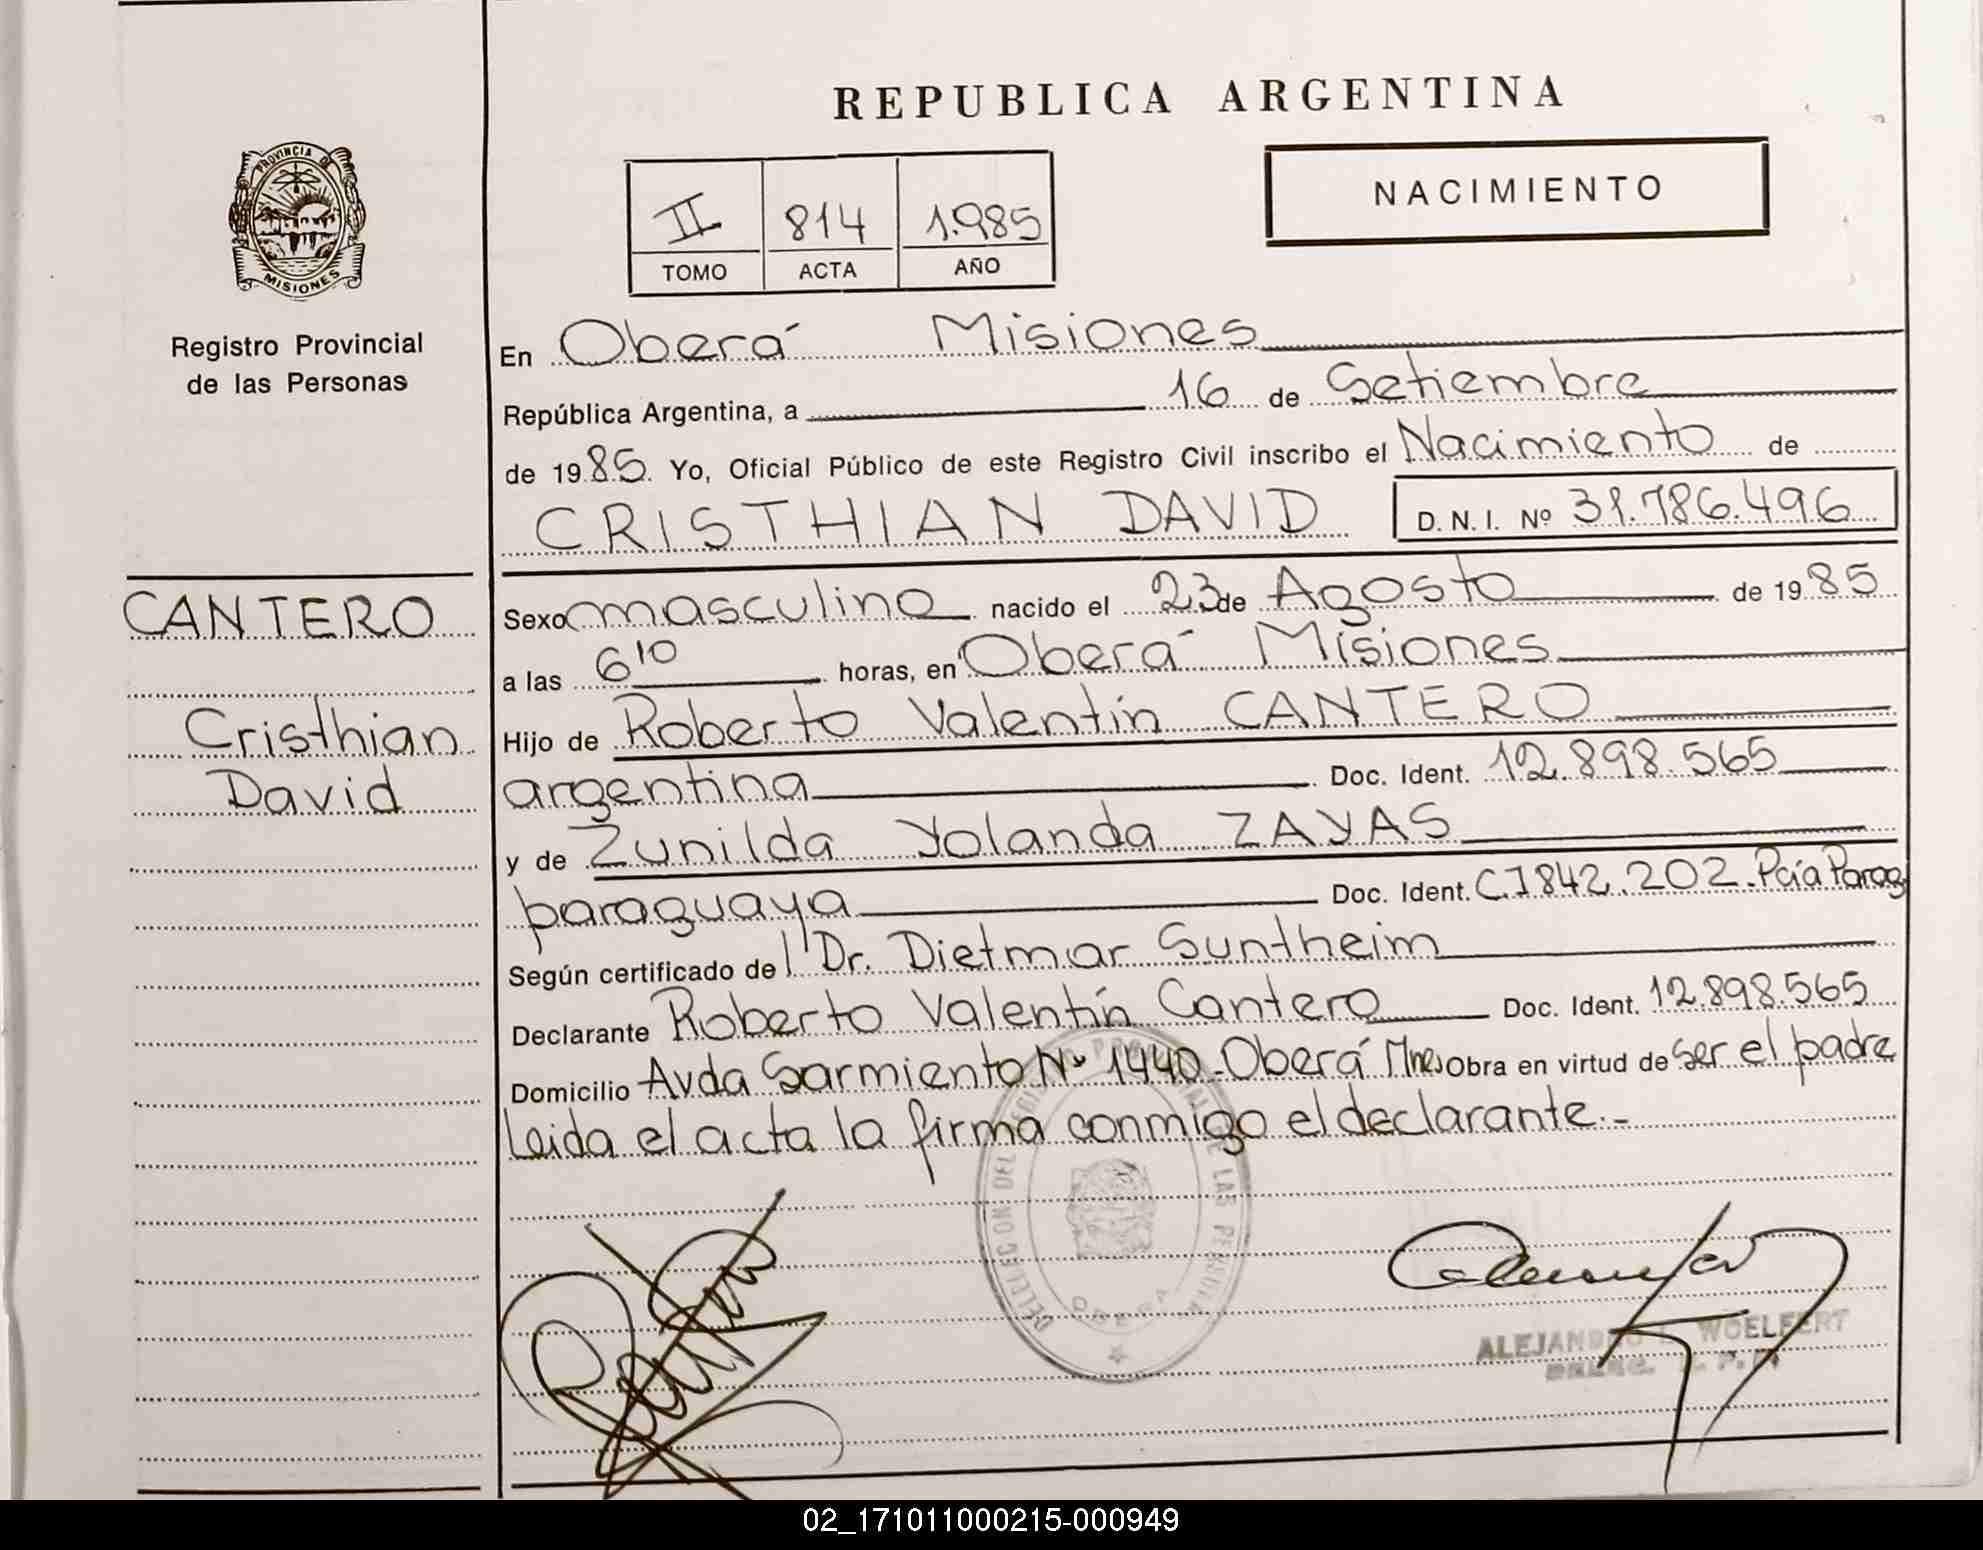 REPUBLICA ARGENTINA
NACIMIENTO
II 814 1.985
TOMO ACTA AÑO
PROVINCIA DE
MISIONES
Registro Provincial
de las Personas
En Oberá Misiones
República Argentina, a 16 de Setiembre
de 1985. Yo, Oficial Público de este Registro Civil inscribo el Nacimiento de
CRISTHIAN DAVID D. N. I. Nº 31.786.496
CANTERO
Cristhian
David
Sexo masculino nacido el 23 de Agosto de 1985
a las 6 10 horas, en Oberá Misiones
Hijo de Roberto Valentín CANTERO
argentina Doc. Ident. 12.898.565
y de Zunilda Yolanda ZAYAS
paraguaya Doc. Ident. C.I 842.202. Pcía Parag
Según certificado del Dr. Dietmar Suntheim
Declarante Roberto Valentín Cantero Doc. Ident. 12.898.565
Domicilio Avda Sarmiento Nº 1440-Oberá Mnes Obra en virtud de ser el padre
Leida el acta la firma conmigo el declarante.-
DELEGACION DEL REGISTRO PROVINCIAL DE LAS PERSONAS
OBERA
ALEJANDRO WOELFERT
02_171011000215-000949